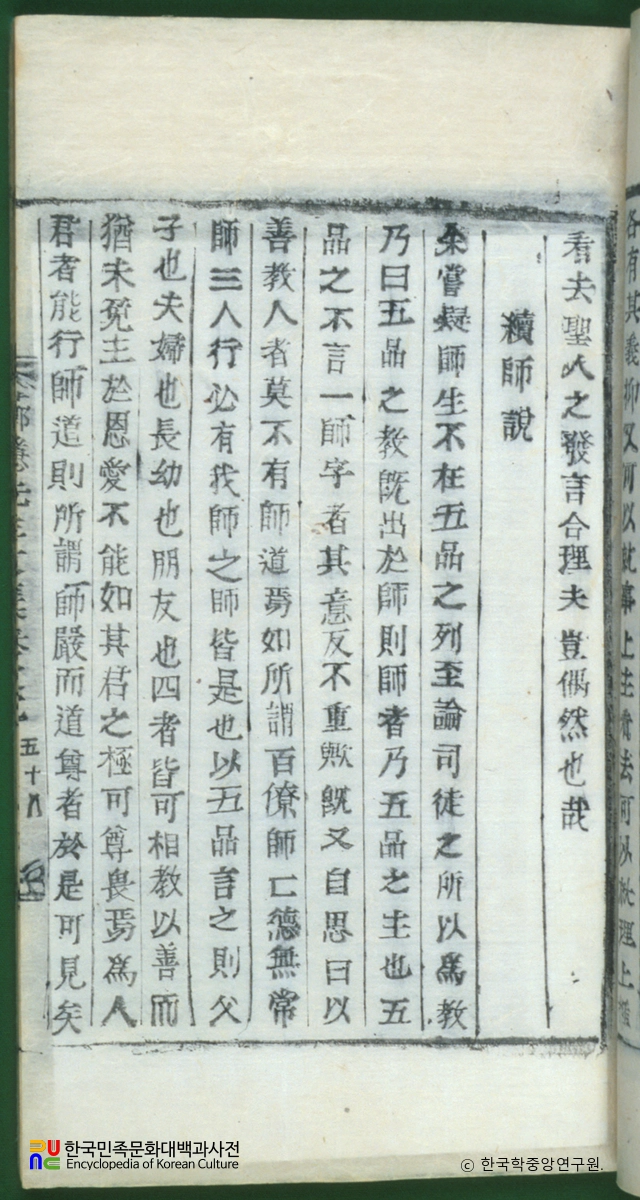 看去聖人之發言合理夫豈偶然也哉
續師說
余嘗疑師生不在五品之列至論司徒之所以爲教
乃曰五品之教旣出於師則師者乃五品之主也五
品之不言一師字者其意反不重歟旣又自思曰以
善教人者莫不有師道焉如所謂百僚師師德無常
師三人行必有我師之師皆是也以五品言之則父
子也夫婦也長幼也朋友也四者皆可相教以善而
猶未免主於恩愛不能如其君之極可尊畏焉爲人
君者能行師道則所謂師嚴而道尊者於是可見矣
五十八
한국민족문화대백과사전
Encyclopedia of Korean Culture
© 한국학중앙연구원.